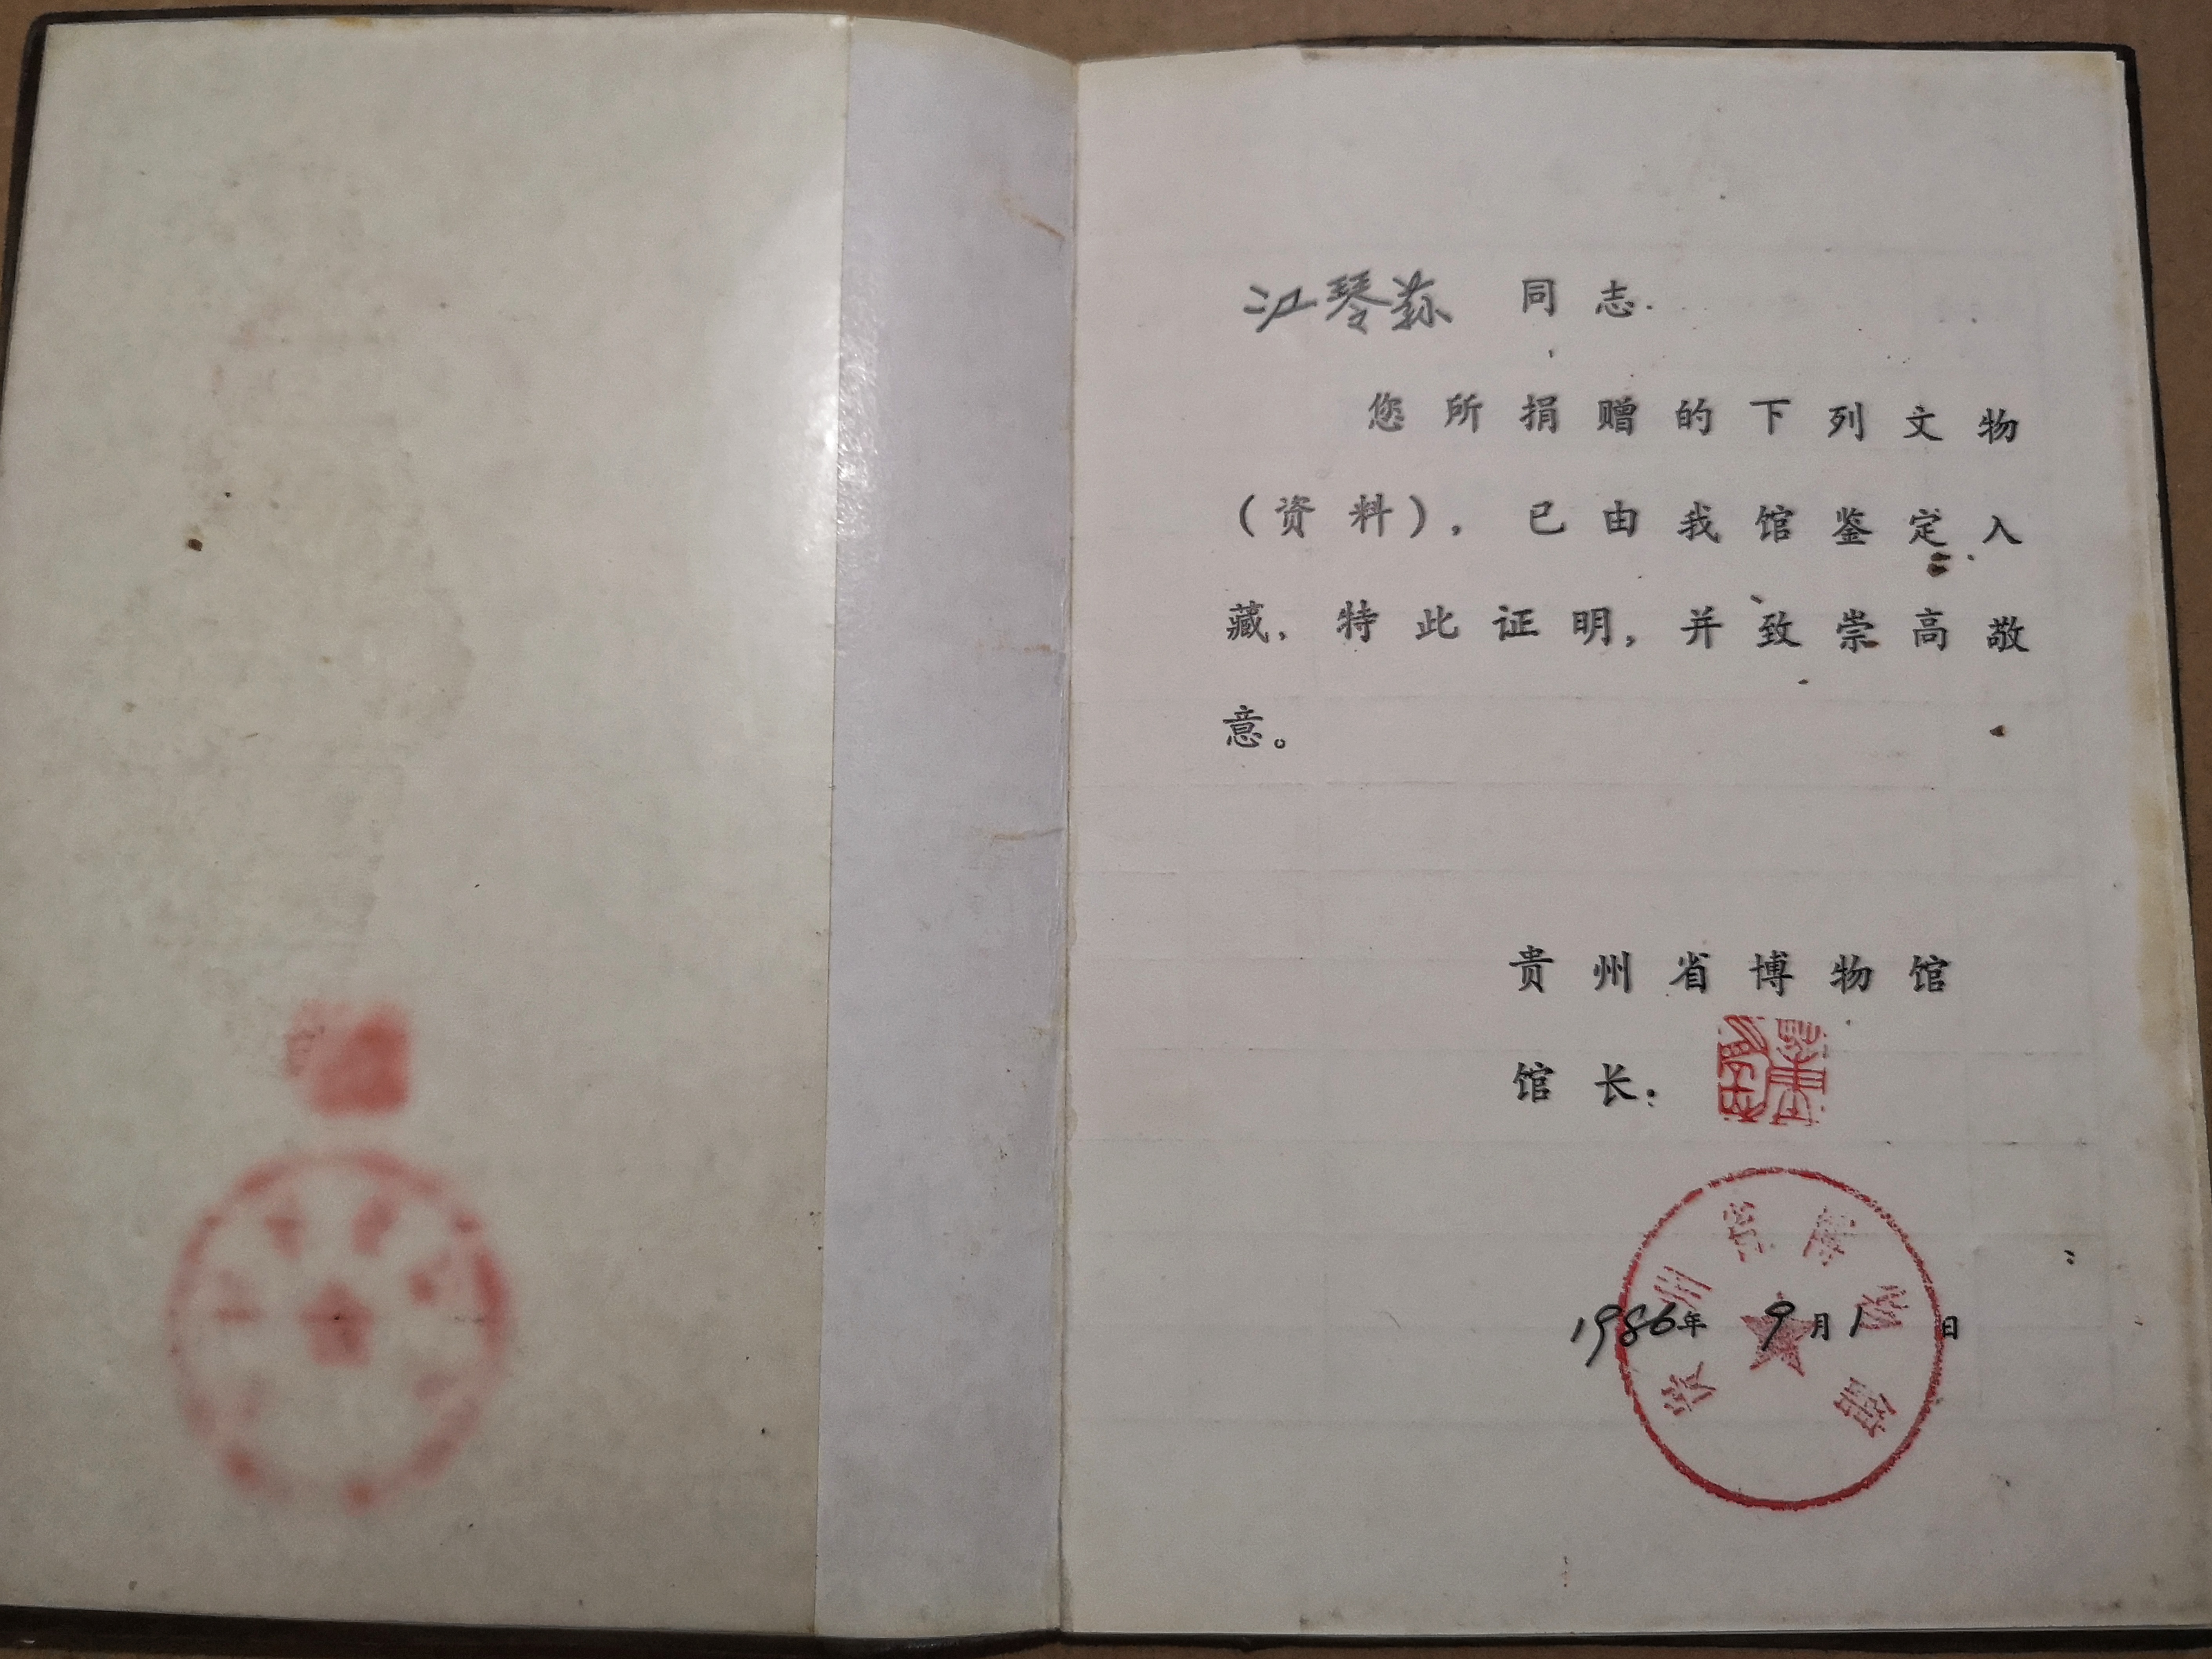 江琴荪 同志.
您所捐赠的下列文物
（资料），已由我馆鉴定入
藏，特此证明，并致崇高敬
意。
贵州省博物馆
馆长：
贵州省博物馆
1986年9月1日